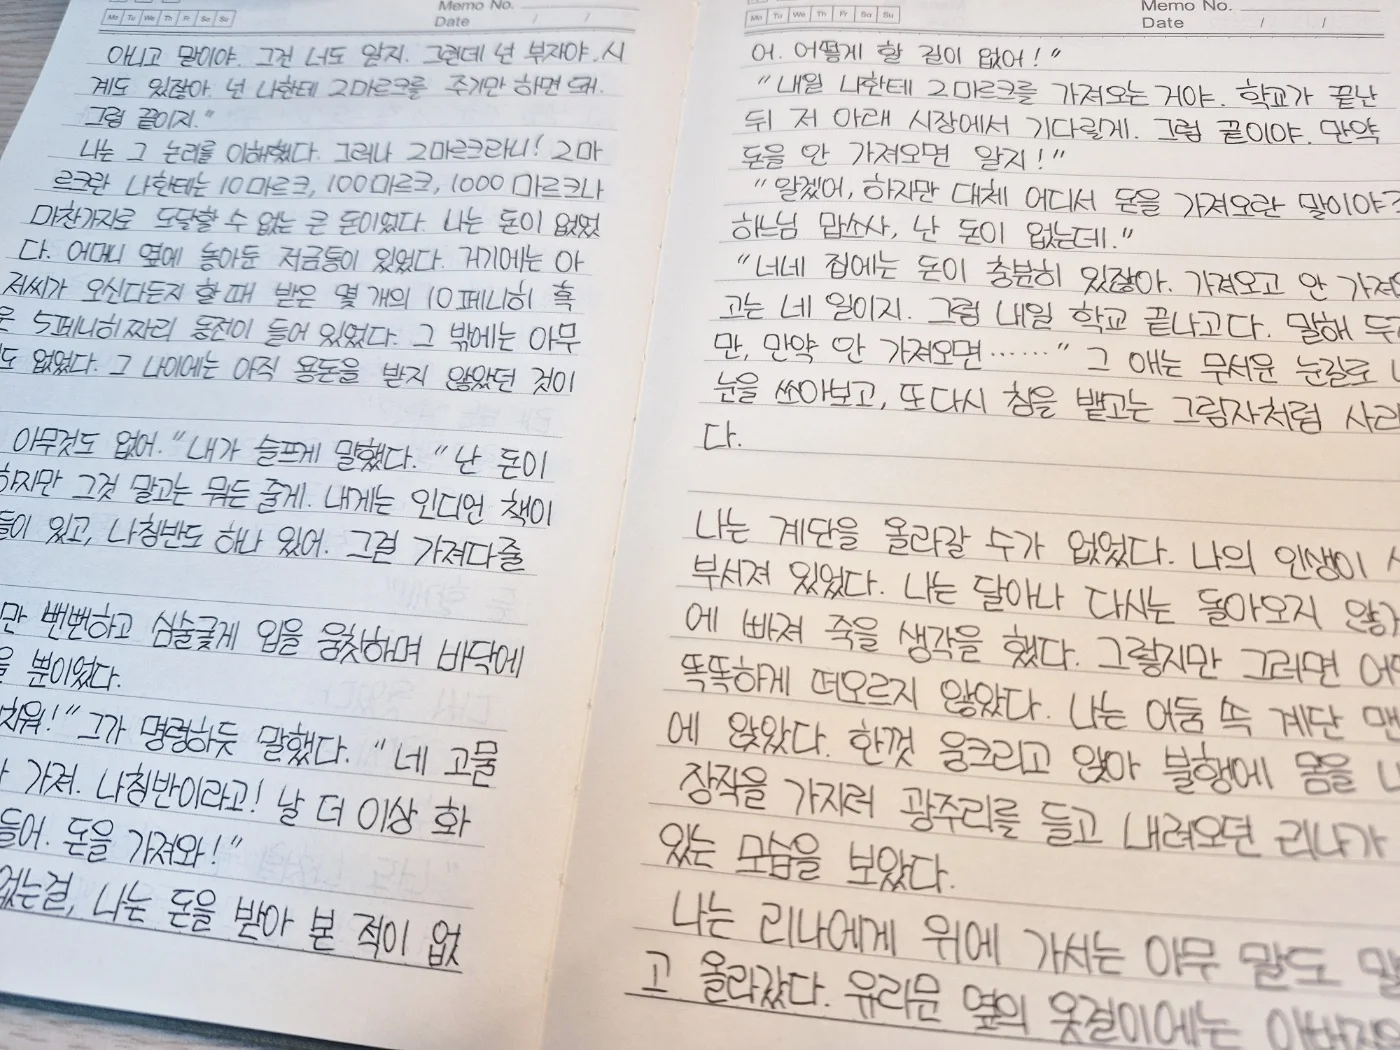 Mo Tu We Th Fr Sa Su
Memo No.
Date / /
아니고 말이야. 그건 너도 알지. 그런데 넌 부자야. 시
계도 있잖아. 넌 나한테 2마르크를 주기만 하면 돼.
그럼 끝이지."
나는 그 논리를 이해했다. 그러나 2마르크라니! 2마
르크란 나한테는 10마르크, 100마르크, 1000마르크나
마찬가지로 도달할 수 없는 큰 돈이었다. 나는 돈이 없었
다. 어머니 옆에 놓아둔 저금통이 있었다. 거기에는 아
저씨가 오신다든지 할 때 받은 몇 개의 10페니히 혹
은 5페니히짜리 동전이 들어 있었다. 그 밖에는 아무
도 없었다. 그 나이에는 아직 용돈을 받지 않았던 것이
아무것도 없어." 내가 슬프게 말했다. "난 돈이
하지만 그것 말고는 뭐든 줄게. 내게는 인디언 책이
들이 있고, 나침반도 하나 있어. 그걸 가져다줄
만 뻔뻔하고 심술궂게 입을 움찟하며 바닥에
을 뿐이었다.
치워!" 그가 명령하듯 말했다. "네 고물
가져. 나침반이라고! 날 더 이상 화
들어. 돈을 가져와!"
없는걸, 나는 돈을 받아 본 적이 없
Mo Tu We Th Fr Sa Su
Memo No.
Date / /
어. 어떻게 할 길이 없어!"
"내일 나한테 2마르크를 가져오는 거야. 학교가 끝난
뒤 저 아래 시장에서 기다릴게. 그럼 끝이야. 만약
돈을 안 가져오면 알지!"
"알겠어, 하지만 대체 어디서 돈을 가져오란 말이야?
하느님 맙소사, 난 돈이 없는데."
"너네 집에는 돈이 충분히 있잖아. 가져오고 안 가져오
고는 네 일이지. 그럼 내일 학교 끝나고다. 말해 두지
만, 만약 안 가져오면……" 그 애는 무서운 눈길로 내
눈을 쏘아보고, 또다시 침을 뱉고는 그림자처럼 사라
다.
나는 계단을 올라갈 수가 없었다. 나의 인생이
부서져 있었다. 나는 달아나 다시는 돌아오지 않
에 빠져 죽을 생각을 했다. 그렇지만 그러면
똑똑하게 떠오르지 않았다. 나는 어둠 속 계단 맨
에 앉았다. 한껏 웅크리고 앉아 불행에 몸을
장작을 가지러 광주리를 들고 내려오던 리나가
있는 모습을 보았다.
나는 리나에게 위에 가서는 아무 말도
고 올라갔다. 유리문 옆의 옷걸이에는 아버지의